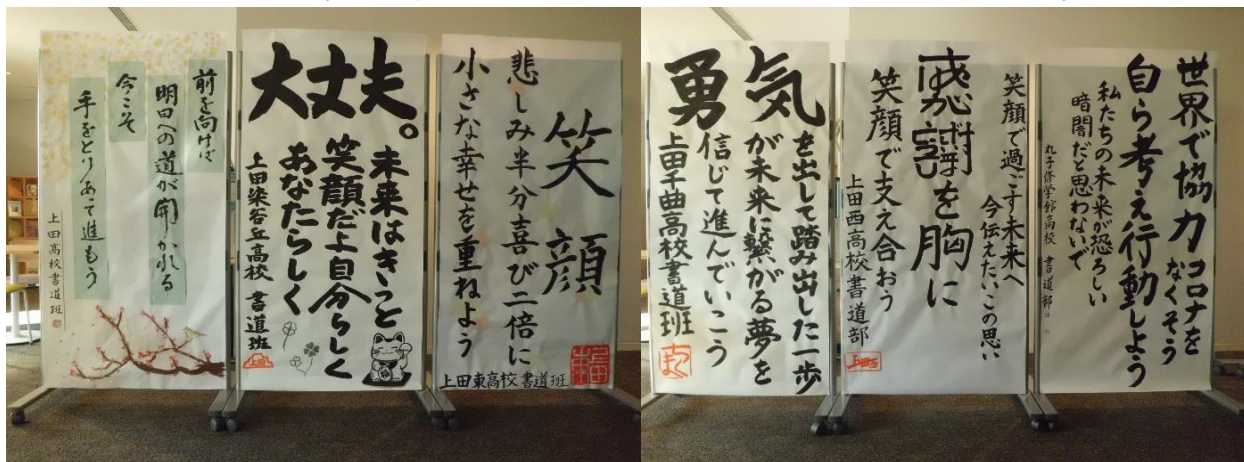 前を向けば
明日への道が開かれる
今こそ
手をとりあって進もう
上田高校書道班
大丈夫。
未来はきっと
笑顔だよ自分らしく
あなたらしく
上田染谷丘高校 書道班
上田
笑顔
悲しみ半分喜び二倍に
小さな幸せを重ねよう
上田東高校書道班
勇気
を出して踏み出した一歩
が未来に繋がる夢を
信じて進んでいこう
上田千曲高校書道班
笑顔で過ごす未来へ
今伝えたい、この思い
感謝を胸に
笑顔で支え合おう
上田西高校書道部
上田西
世界で協力 コロナを
なくそう
自ら考え行動しよう
私たちの未来が恐ろしい
暗闇だと思わないで
丸子修学館高校 書道部